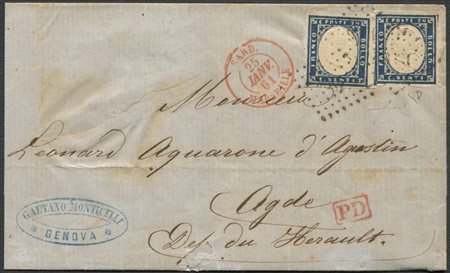 FRANCO C. POSTE 20 BOLLO C. VENTI
FRANCO C. POSTE 20 BOLLO C. VENTI
SARD.
25
JANV.
61
Monsieur
Leonard Aquarone d'Agostin
Agde
PD
Dep. du Herault.
GAETANO MONTICELLI
GENOVA